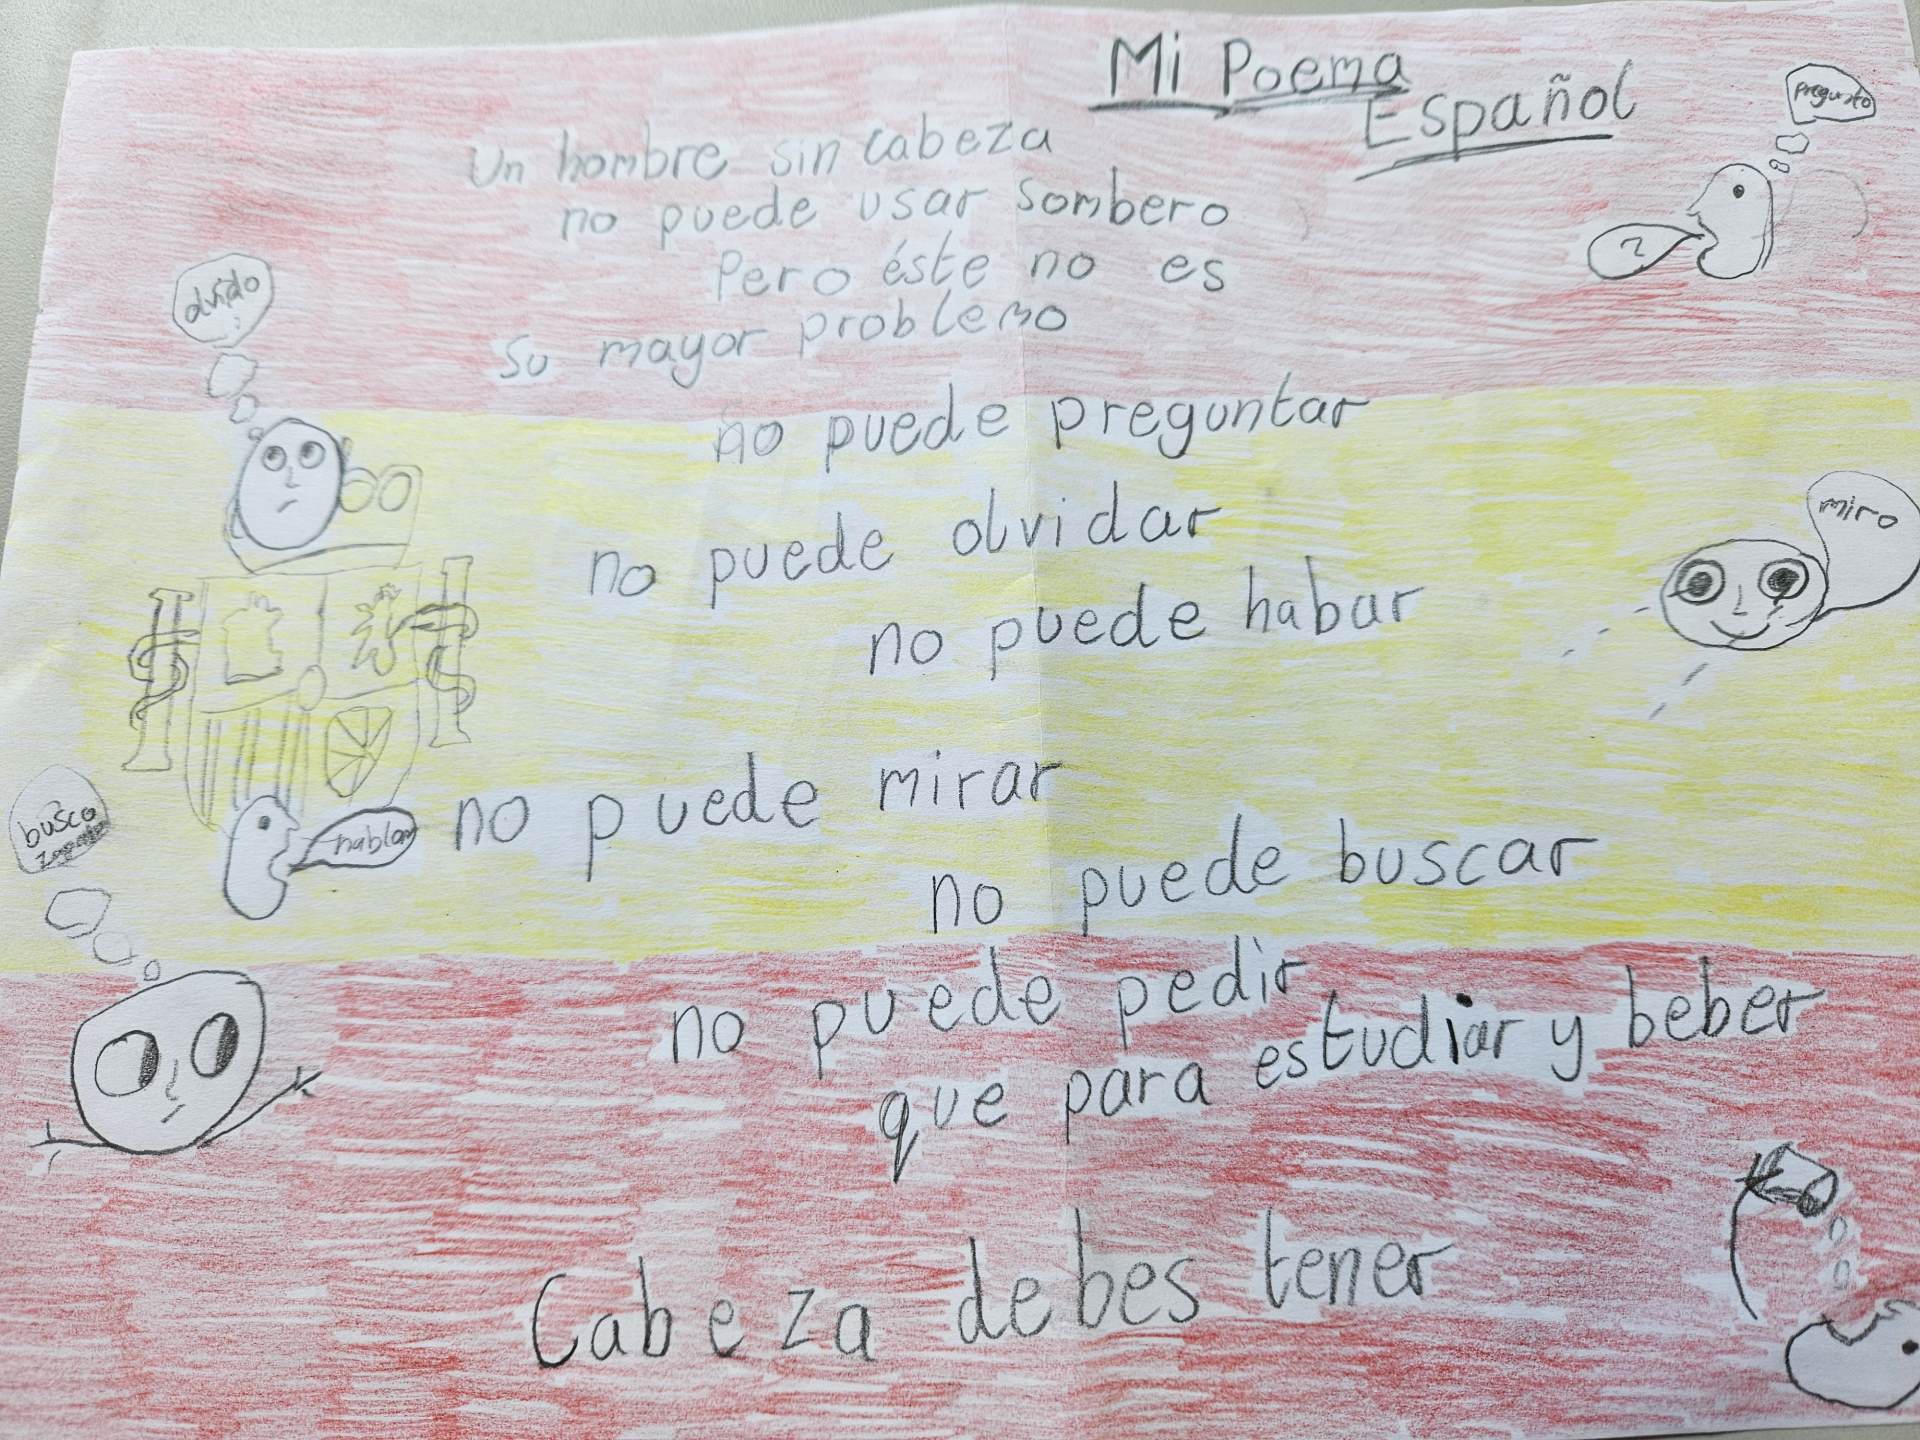 Mi Poema
Español
Un hombre sin cabeza
no puede usar sombero
Pero éste no es
su mayor problema
no puede preguntar
no puede olvidar
no puede habar
no puede mirar
no puede buscar
no puede pedir
que para estudiar y beber
Cabeza debes tener
pregunto
?
olvido
miro
busco
hablar